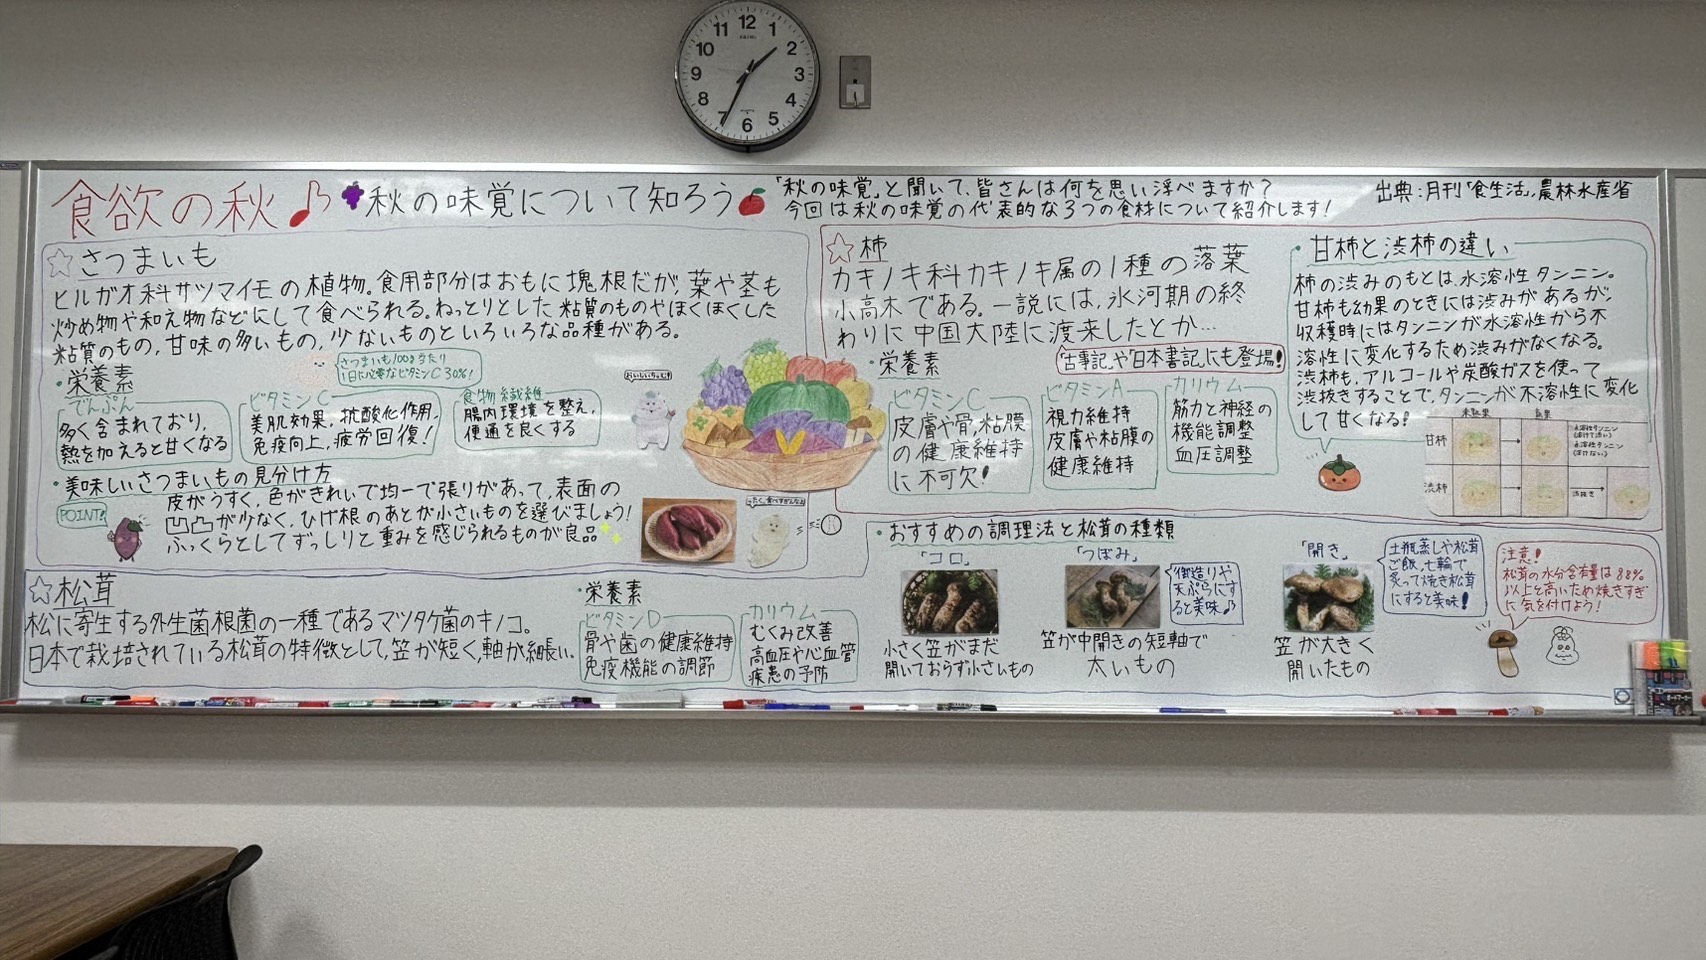 食欲の秋♪ 秋の味覚について知ろう
「秋の味覚」と聞いて、皆さんは何を思い浮べますか?
今回は秋の味覚の代表的な3つの食材について紹介します!
出典:月刊「食生活」,農林水産省
☆さつまいも
ヒルガオ科サツマイモの植物。食用部分はおもに塊根だが、葉や茎も
炒め物や和え物などにして食べられる。ねっとりとした粘質のものやほくほくした
粘質のもの,甘味の多いもの,少ないものといろいろな品種がある。
・栄養素
さつまいも100g当たり
1日に必要なビタミンC30%!
でんぷん
多く含まれており,
熱を加えると甘くなる
ビタミンC
美肌効果,抗酸化作用,
免疫向上,疲労回復!
食物繊維
腸内環境を整え,
便通を良くする
・美味しいさつまいもの見分け方
POINT!
皮がうすく,色がきれいで均一で張りがあって,表面の
凹凸が少なく,ひげ根のあとが小さいものを選びましょう!
ふっくらとしてずっしりと重みを感じられるものが良品
☆柿
カキノキ科カキノキ属の1種の落葉
小高木である。一説には,氷河期の終
わりに中国大陸に渡来したとか…
「古事記」や「日本書記」にも登場!
・栄養素
ビタミンC
皮膚や骨,粘膜
の健康維持
に不可欠!
ビタミンA
視力維持
皮膚や粘膜の
健康維持
カリウム
筋力と神経の
機能調整
血圧調整
・甘柿と渋柿の違い
柿の渋みのもとは,水溶性タンニン。
甘柿も幼果のときには渋みがあるが,
収穫時にはタンニンが水溶性から不
溶性に変化するため渋みがなくなる。
渋柿も,アルコールや炭酸ガスを使って
渋抜きすることで,タンニンが不溶性に変化
して甘くなる!
甘柿
渋柿
☆松茸
松に寄生する外生菌根菌の一種であるマツタケ菌のキノコ。
日本で栽培されている松茸の特徴として,笠が短く,軸が細長い.
・栄養素
ビタミンD
骨や歯の健康維持
免疫機能の調節
カリウム
むくみ改善
高血圧や心血管
疾患の予防
・おすすめの調理法と松茸の種類
「コロ」
小さく笠がまだ
開いておらず小さいもの
「つぼみ」
笠が中開きの短軸で
太いもの
天ぷらにす
ると美味♪
「開き」
笠が大きく
開いたもの
土瓶蒸しや松茸
ご飯,七輪で
炙って焼き松茸
にすると美味!
注意!
松茸の水分含有量は88%
以上と高いため焼きすぎ
に気を付けよう!
12
1
2
3
4
5
6
7
8
9
10
11